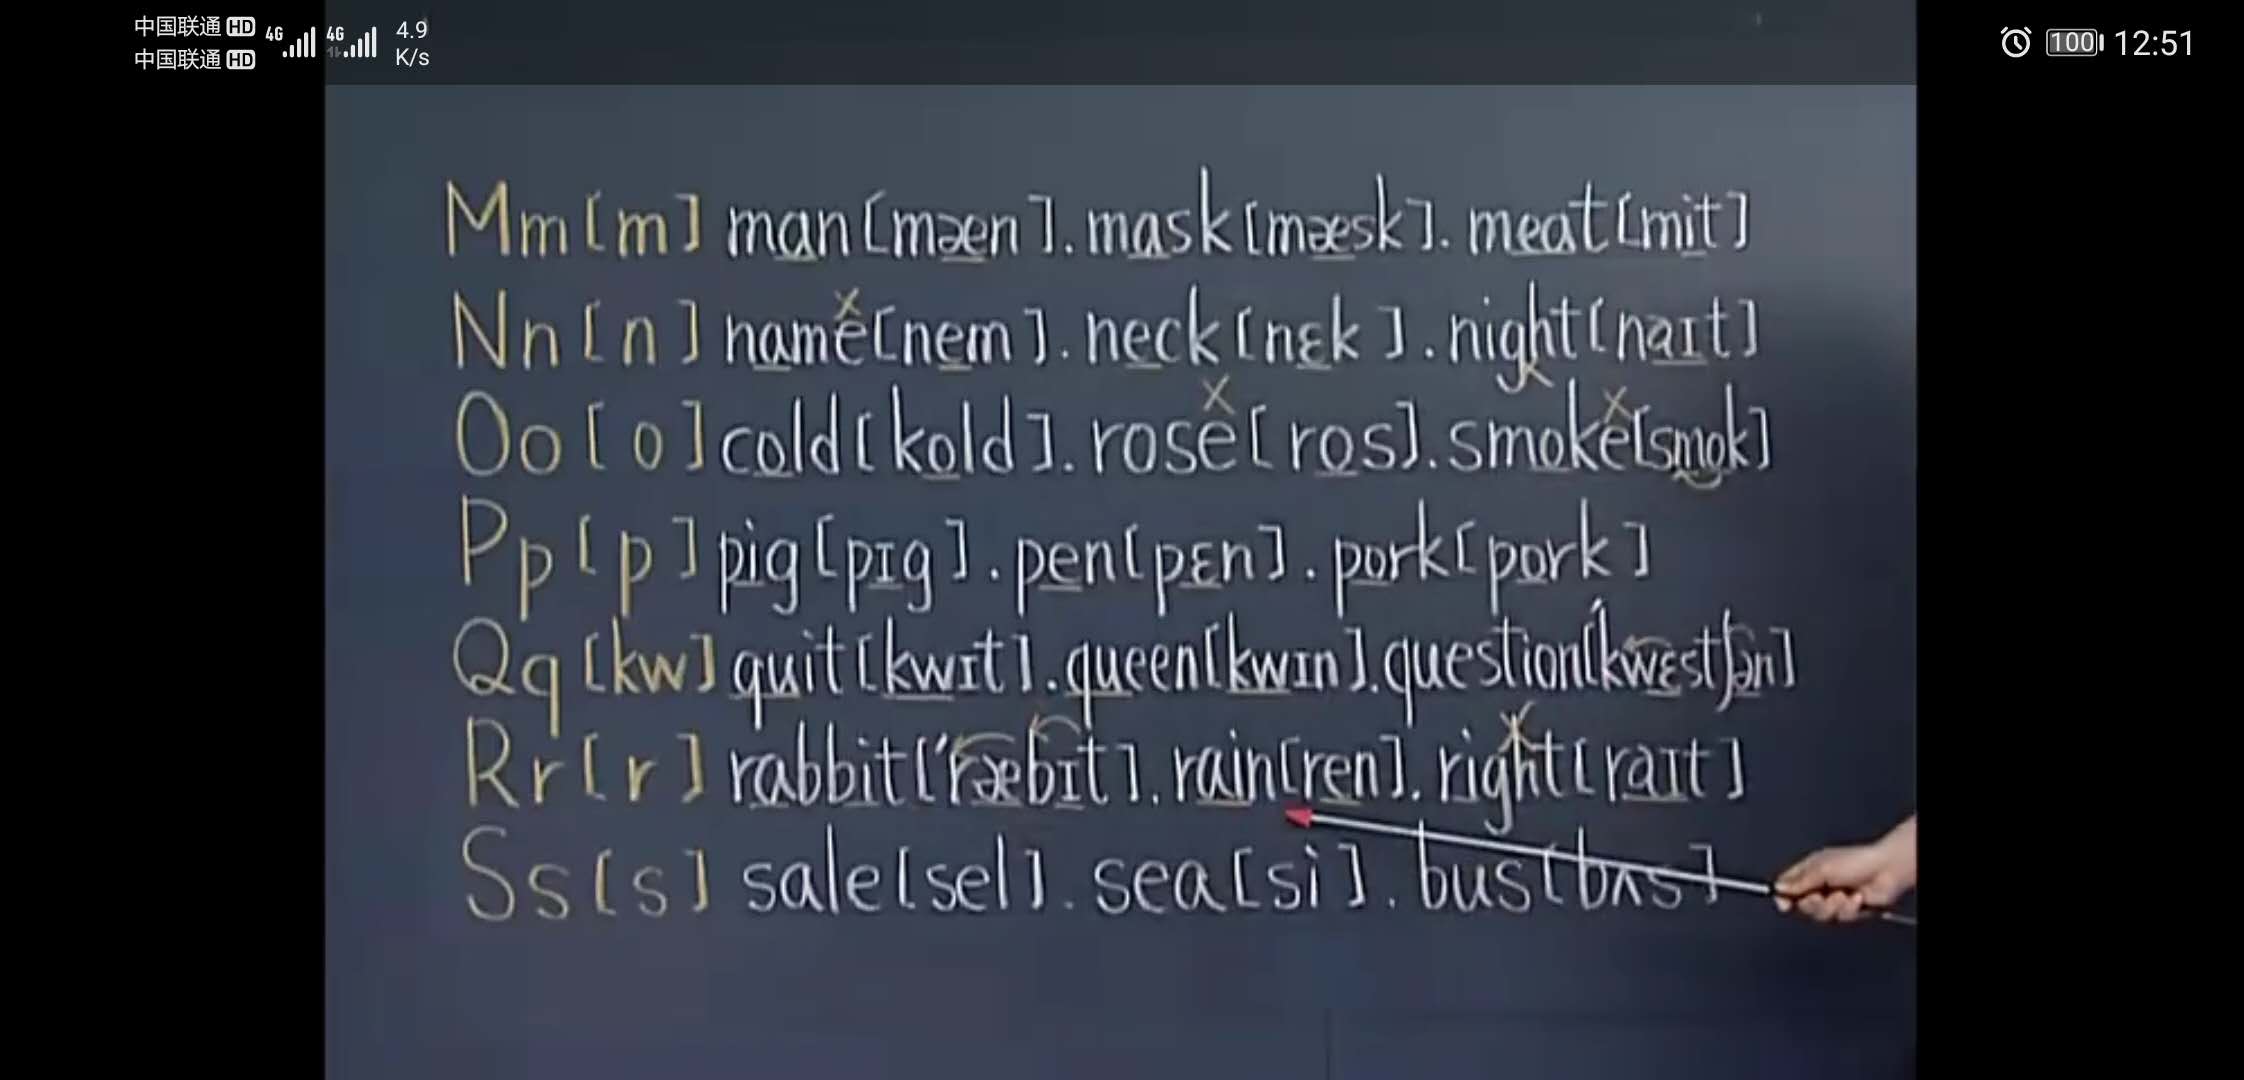 中国联通 HD 4G 4G 4.9 K/s 100 12:51
中国联通 HD
Mm [m] man [mæn]. mask [mæsk]. meat [mit]
Nn [n] name [nem]. neck [nɛk]. night [naɪt]
Oo [o] cold [kold]. rose [ros]. smoke [smok]
Pp [p] pig [pɪg]. pen [pɛn]. pork [pork]
Qq [kw] quit [kwɪt]. queen [kwɪn]. question [ˊkwɛstʃən]
Rr [r] rabbit [ˊræbɪt]. rain [ren]. right [raɪt]
Ss [s] sale [sel]. sea [si]. bus [bʌs]